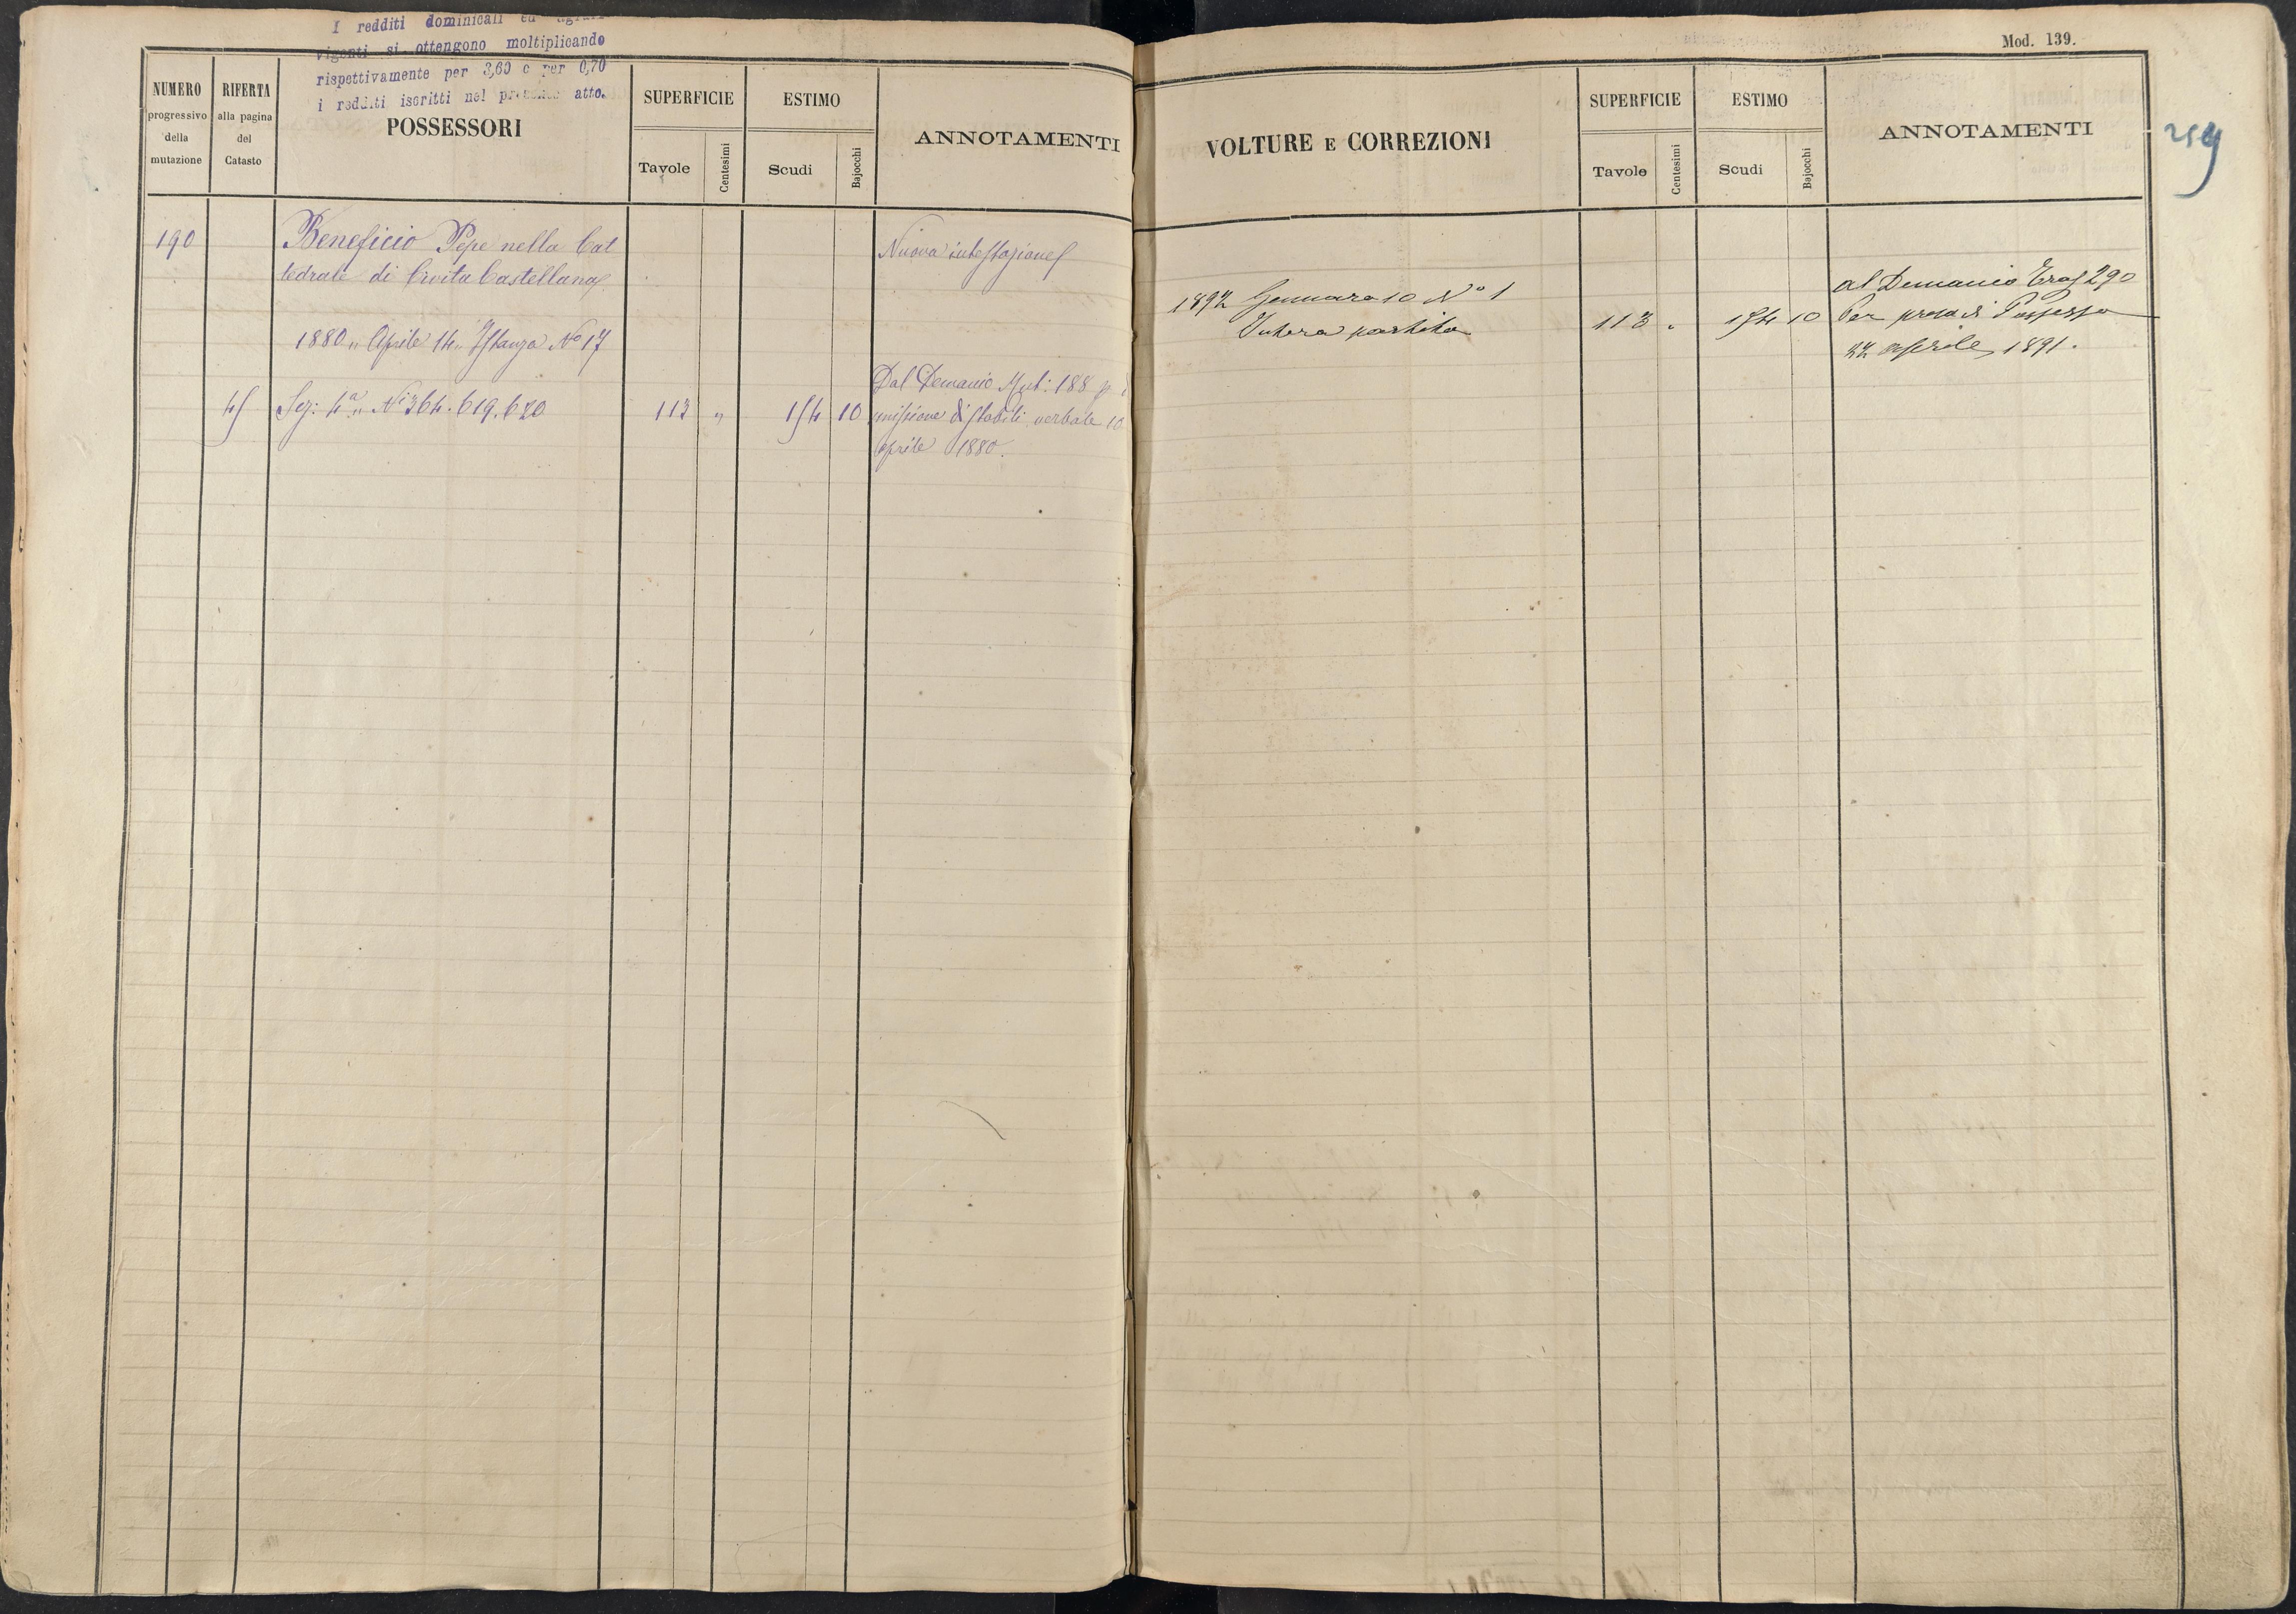 I redditi dominicali ed agrari
vigenti si ottengono moltiplicando
rispettivamente per 3,60 e per 0,70
i redditi iscritti nel presente atto.
NUMERO
progressivo
della
mutazione
RIFERTA
alla pagina
del
Catasto
POSSESSORI
SUPERFICIE
Tavole
Centesimi
ESTIMO
Scudi
Bajocchi
ANNOTAMENTI
190
Beneficio Pepe nella Cat
tedrale di Civita Castellana
Nuova intestazione
1880 „ Aprile 14 „ Istanza No 17
Dal Demanio Mut: 188 p
45 Sez: 4a „ Ni 364. 619. 620 113 „ 154 10 missione di stabili verbale 10
aprile 1880.
Mod. 139.
VOLTURE E CORREZIONI
SUPERFICIE
Tavole
Centesimi
ESTIMO
Scudi
Bajocchi
ANNOTAMENTI
259
1892 Gennaro 10 No 1
Intera partita
113 „ 154 10
al Demanio Tras 290
Per presa di Possesso
22 aprile 1891.